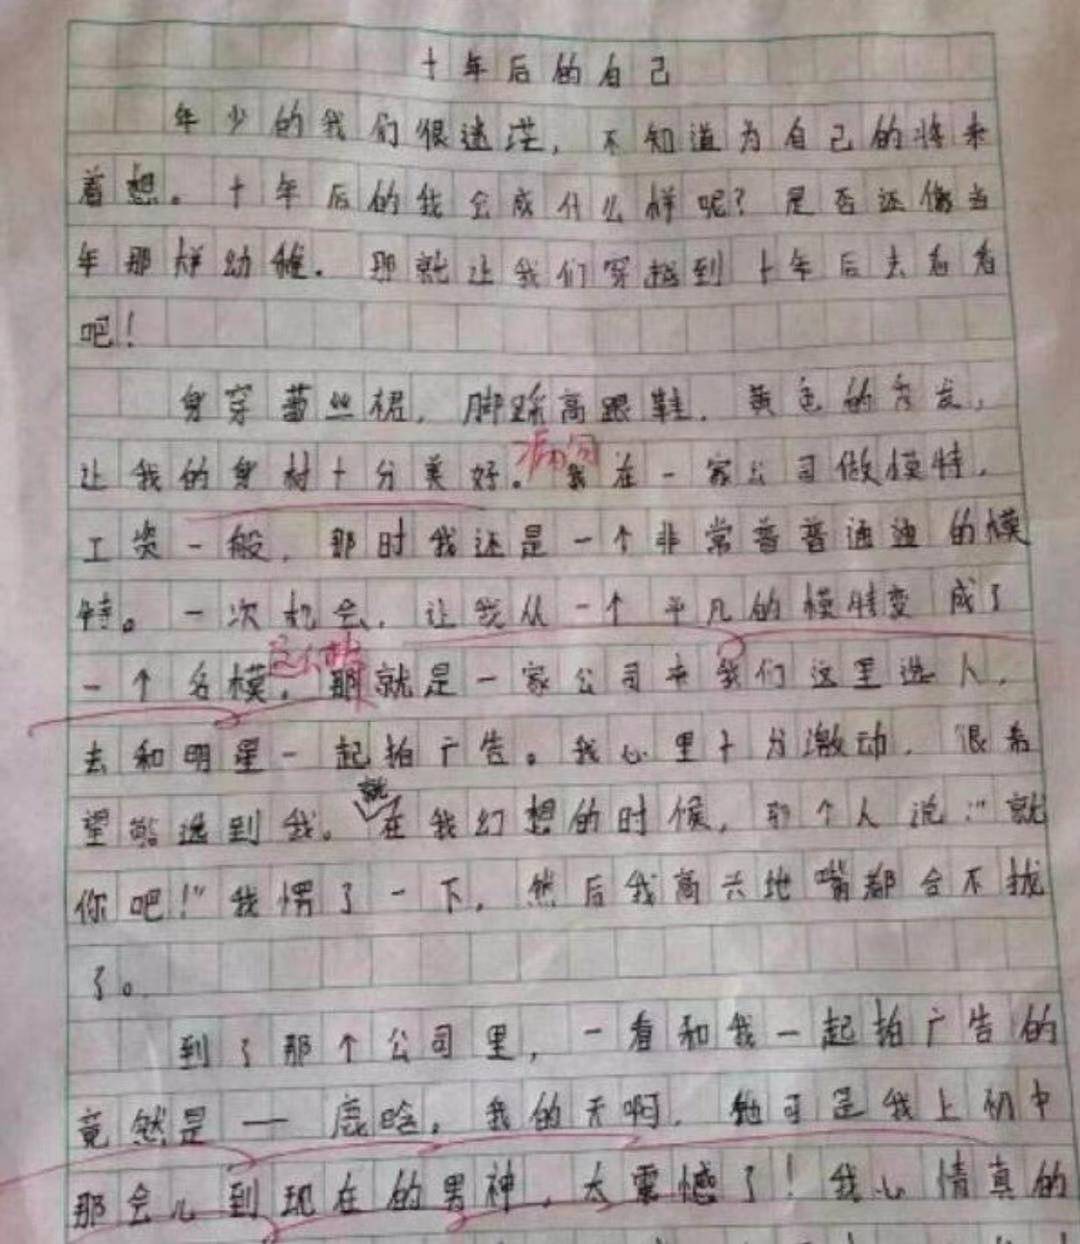 十年后的自己
年少的我们很迷茫，不知道为自己的将来
着想。十年后的我会成什么样呢？是否还像当
年那样幼稚。那就让我们穿越到十年后去看看
吧！
身穿蕾丝裙，脚踩高跟鞋，黄色的秀发，
病句
让我的身材十分美好。我在一家公司做模特，
工资一般，那时我还是一个非常普普通通的模
特。一次机会，让我从一个平凡的模特变成了
一个名模，那就是一家公司来我们这里选人，
去和明星一起拍广告。我心里十分激动，很希
就
望能选到我。在我幻想的时候，那个人说：“就
你吧！”我愣了一下，然后我高兴地嘴都合不拢
了。
到了那个公司里，一看和我一起拍广告的
竟然是一鹿晗。我的天啊，他可是我上初中
那会儿到现在的男神，太震憾了！我心情真的